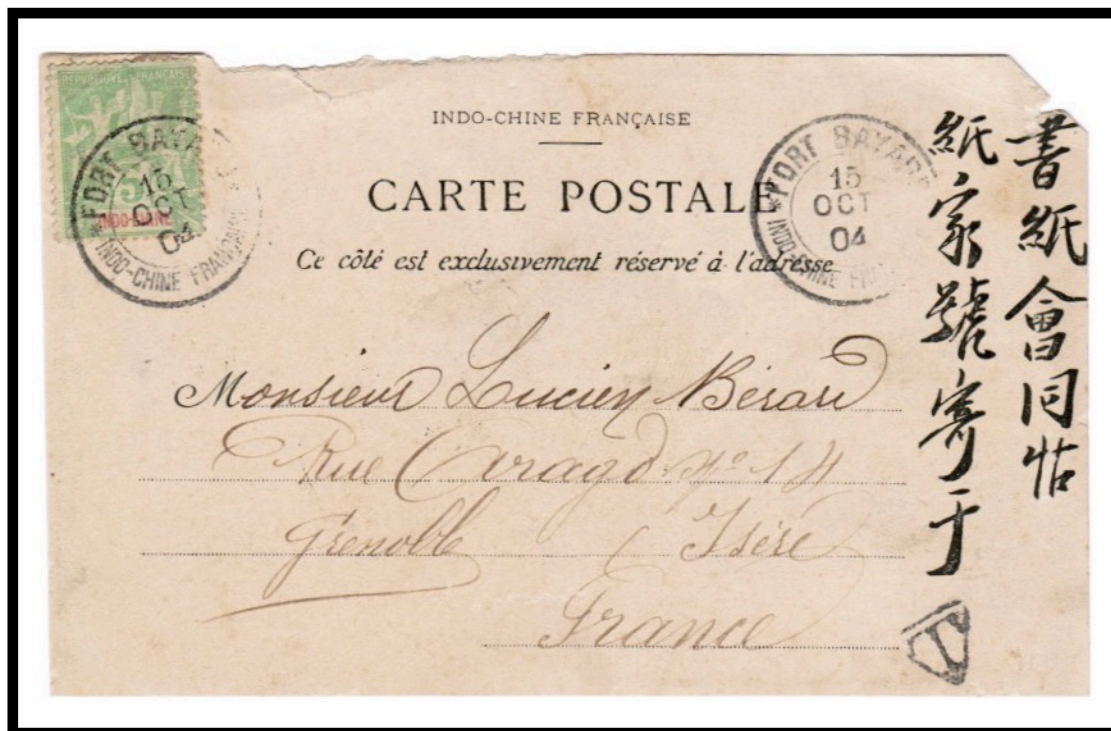 RÉPUBLIQUE FRANÇAISE
5
INDO-CHINE
FORT BAYA
15
OCT
04
INDO-CHINE FRANÇAISE
INDO-CHINE FRANÇAISE
CARTE POSTALE
Ce côté est exclusivement réservé à l'adresse
FORT BAYARD
15
OCT
04
INDO-CHINE FR
Monsieur Lucien Bérard
Rue Arago Nº 14
Grenoble (Isère
France
書紙會同帖
紙家號寄于
T